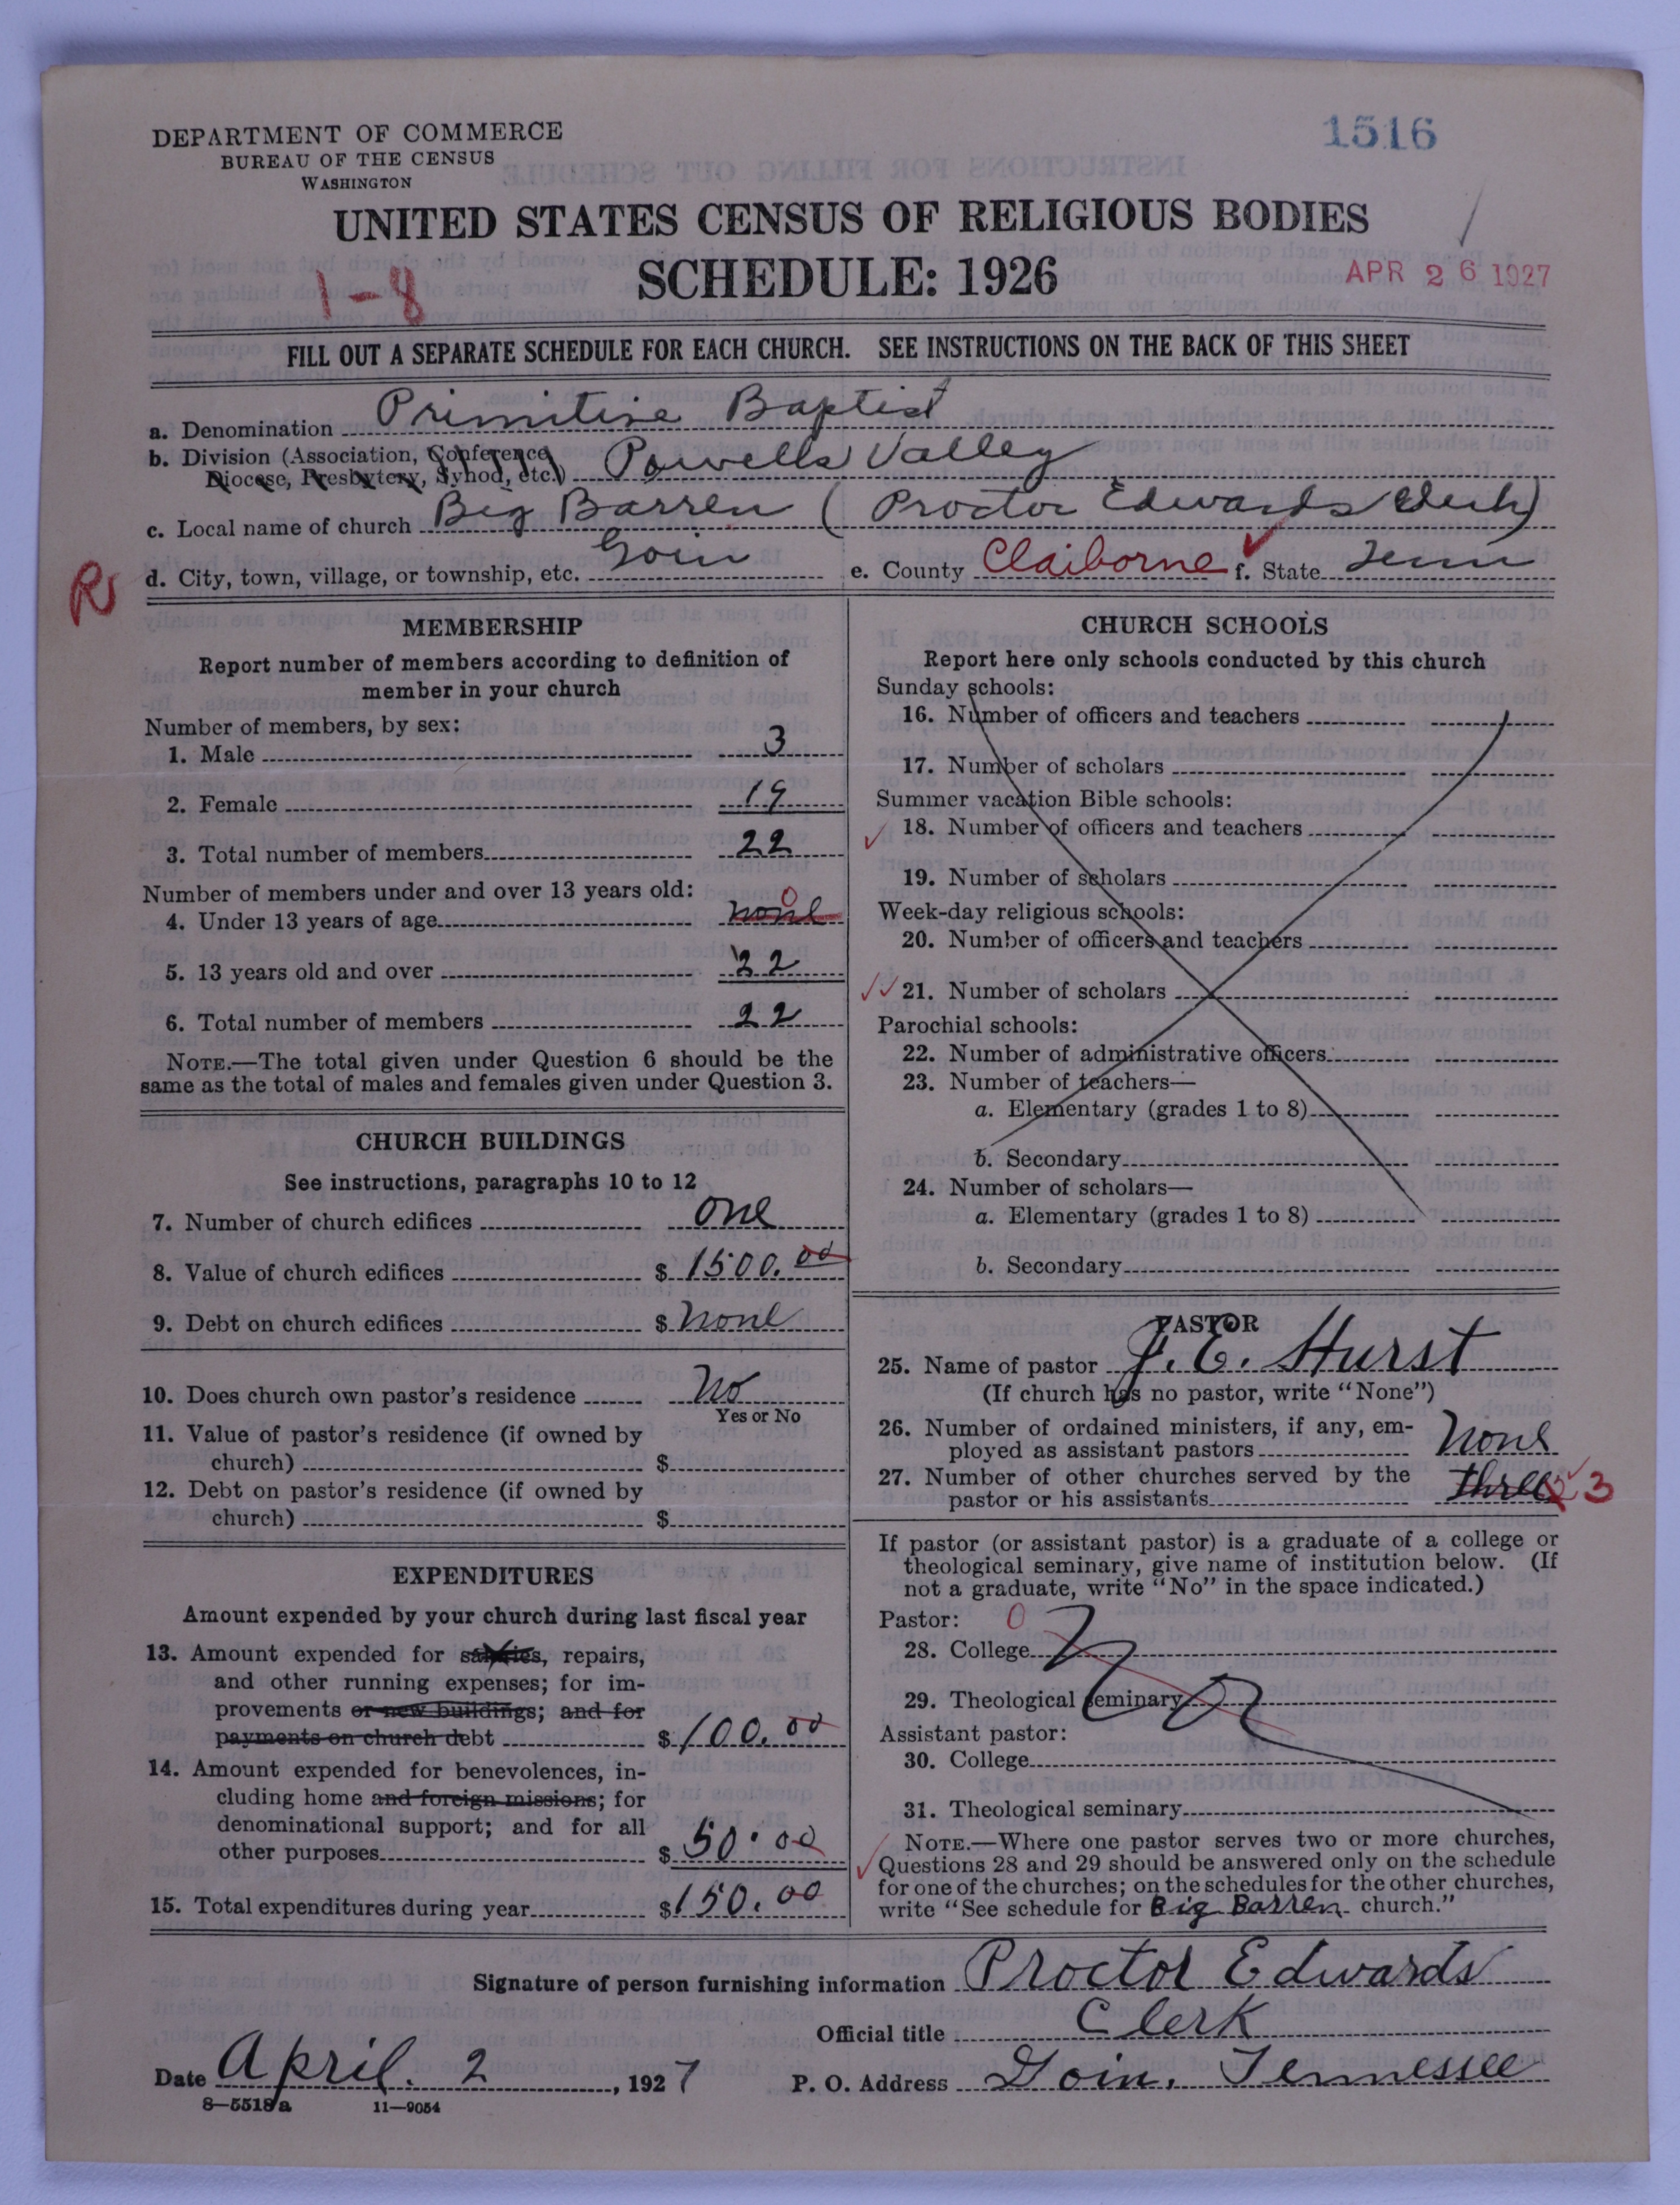 DEPARTMENT OF COMMERCE
BUREAU OF THE CENSUS
WASHINGTON
1516
UNITED STATES CENSUS OF RELIGIOUS BODIES
SCHEDULE: 1926
1-8
APR 26 1927
FILL OUT A SEPARATE SCHEDULE FOR EACH CHURCH. SEE INSTRUCTIONS ON THE BACK OF THIS SHEET
a. Denomination Primitive Baptist
b. Division (Association, Conference, Diocese, Presbytery, Synod, etc.) Powells Valley
c. Local name of church Big Barren (Proctor Edwards Clerk)
R
d. City, town, village, or township, etc. Goin e. County Claiborne f. State Tenn
MEMBERSHIP
Report number of members according to definition of
member in your church
Number of members, by sex:
1. Male 3
2. Female 19
3. Total number of members 22
Number of members under and over 13 years old:
4. Under 13 years of age none 0
5. 13 years old and over 22
6. Total number of members 22
NOTE.—The total given under Question 6 should be the
same as the total of males and females given under Question 3.
CHURCH BUILDINGS
See instructions, paragraphs 10 to 12
7. Number of church edifices one
8. Value of church edifices $1500.00
9. Debt on church edifices $none
10. Does church own pastor's residence No
Yes or No
11. Value of pastor's residence (if owned by
church) $
12. Debt on pastor's residence (if owned by
church) $
EXPENDITURES
Amount expended by your church during last fiscal year
13. Amount expended for salaries, repairs,
and other running expenses; for im-
provements or new buildings; and for
payments on church debt $100.00
14. Amount expended for benevolences, in-
cluding home and foreign missions; for
denominational support; and for all
other purposes $50.00
15. Total expenditures during year $150.00
CHURCH SCHOOLS
Report here only schools conducted by this church
Sunday schools:
16. Number of officers and teachers
17. Number of scholars
Summer vacation Bible schools:
18. Number of officers and teachers
19. Number of scholars
Week-day religious schools:
20. Number of officers and teachers
21. Number of scholars
Parochial schools:
22. Number of administrative officers
23. Number of teachers—
a. Elementary (grades 1 to 8)
b. Secondary
24. Number of scholars—
a. Elementary (grades 1 to 8)
b. Secondary
PASTOR
25. Name of pastor J. E. Hurst
(If church has no pastor, write "None")
26. Number of ordained ministers, if any, em-
ployed as assistant pastors None
27. Number of other churches served by the
pastor or his assistants three 3
If pastor (or assistant pastor) is a graduate of a college or
theological seminary, give name of institution below. (If
not a graduate, write "No" in the space indicated.)
Pastor: 0
28. College No
29. Theological seminary
Assistant pastor:
30. College
31. Theological seminary
NOTE.—Where one pastor serves two or more churches,
Questions 28 and 29 should be answered only on the schedule
for one of the churches; on the schedules for the other churches,
write "See schedule for Big Barren church."
Signature of person furnishing information Proctor Edwards
Official title Clerk
Date April. 2, 1927 P. O. Address Goin, Tennessee
8—5518a 11—9054